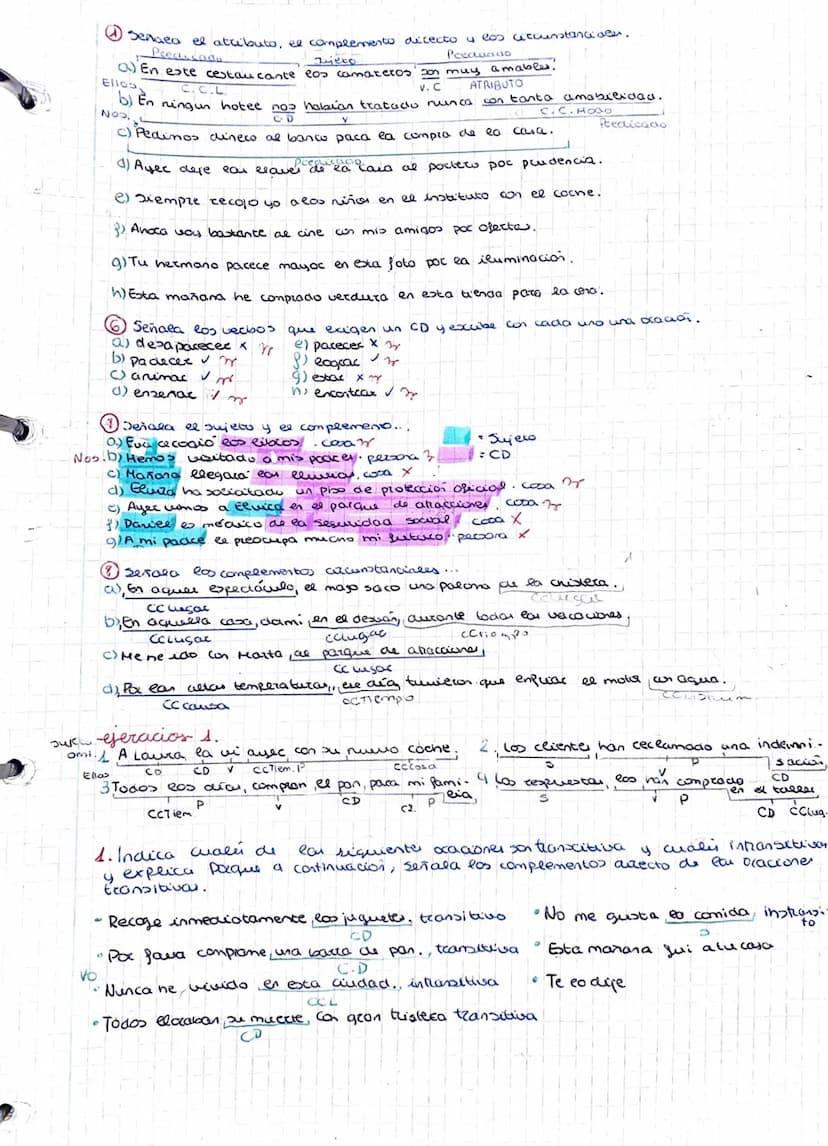 ① Señala el atributo, el complemento directo y los circunstanciales.
Predicado Sujeto Predicado
a) En este restaurante los camareros son muy amables.
Ellos C.C.L V.C ATRIBUTO
b) En ningun hotel nos habían tratado nunca con tanta amabilidad.
Nos. CD V C.C.Modo
Predicado
c) Pedimos dinero al banco para la compra de la casa.
Predicado
d) Ayer deje las llaves de la casa al portero por prudencia.
e) Siempre recojo yo a los niños en el instituto con el coche.
f) Ahora voy bastante al cine con mis amigos por ofertas.
g) Tu hermano parece mayor en esta foto por la iluminación.
h) Esta mañana he comprado verdura en esta tienda para la cena.
⑥ Señala los verbos que exigen un CD y escribe con cada uno una oración.
a) desaparecer x e) parecer x
b) padecer ✓ f) lograr ✓
c) animar ✓ g) estar x
d) enseñar ✓ h) encontrar ✓
⑦ Señala el sujeto y el complemento...
= Sujeto
a) Eva recogió los libros. cosa
= CD
Nos. b) Hemos visitado a mis padres. persona
c) Mañana llegará las lluvias. cosa x
d) Elvira ha solicitado un piso de protección oficial. cosa
e) Ayer vimos a Elvira en el parque de atracciones. cosa
f) Daniel es médico de la seguridad social. cosa x
g) A mi padre le preocupa mucho mi futuro. persona x
⑧ Señala los complementos circunstanciales...
a) En aquel espectáculo, el mago saco una paloma de la chistera.
CCLugar CCLugar
b) En aquella casa, dormi en el desván, durante todas las vacaciones,
CCLugar CCLugar CCTiempo
c) Me he ido con Marta, al parque de atracciones,
CCLugar
d) Por las altas temperaturas, ese día, tuvieron que enfriar el motor con agua.
CCcausa CCTiempo
ejercicios 1.
1 A Laura la vi ayer con su nuevo coche.
CD CD V CCTiem. P CCcosa
2. Los clientes han reclamado una indemni-
sación,
S P CD
Ellos
3 Todos los días, compran el pan, para mi fami-
lia,
CCTiem P V CD P
4 Las respuestas, los han comprado
en el taller
S V P CD CCLug.
1. Indica cuales de las siguiente oraciones son transcitiva y cuales intransitivas
y explica porque a continuación, señala los complementos directo de las oraciones
transitivas.
- Recoge inmediatamente, los juguetes, transitivo
CD
• Por favor comprame, una barra de pan., transitiva
C.D
YO
• Nunca he, vivido en esta ciudad., intransitiva
CCL
• Todos lloraban, su muerte, con gran tristeza transitiva
CD
• No me gusta la comida, instransi-
to
S
• Esta mañana fui a tu casa
• Te lo dije